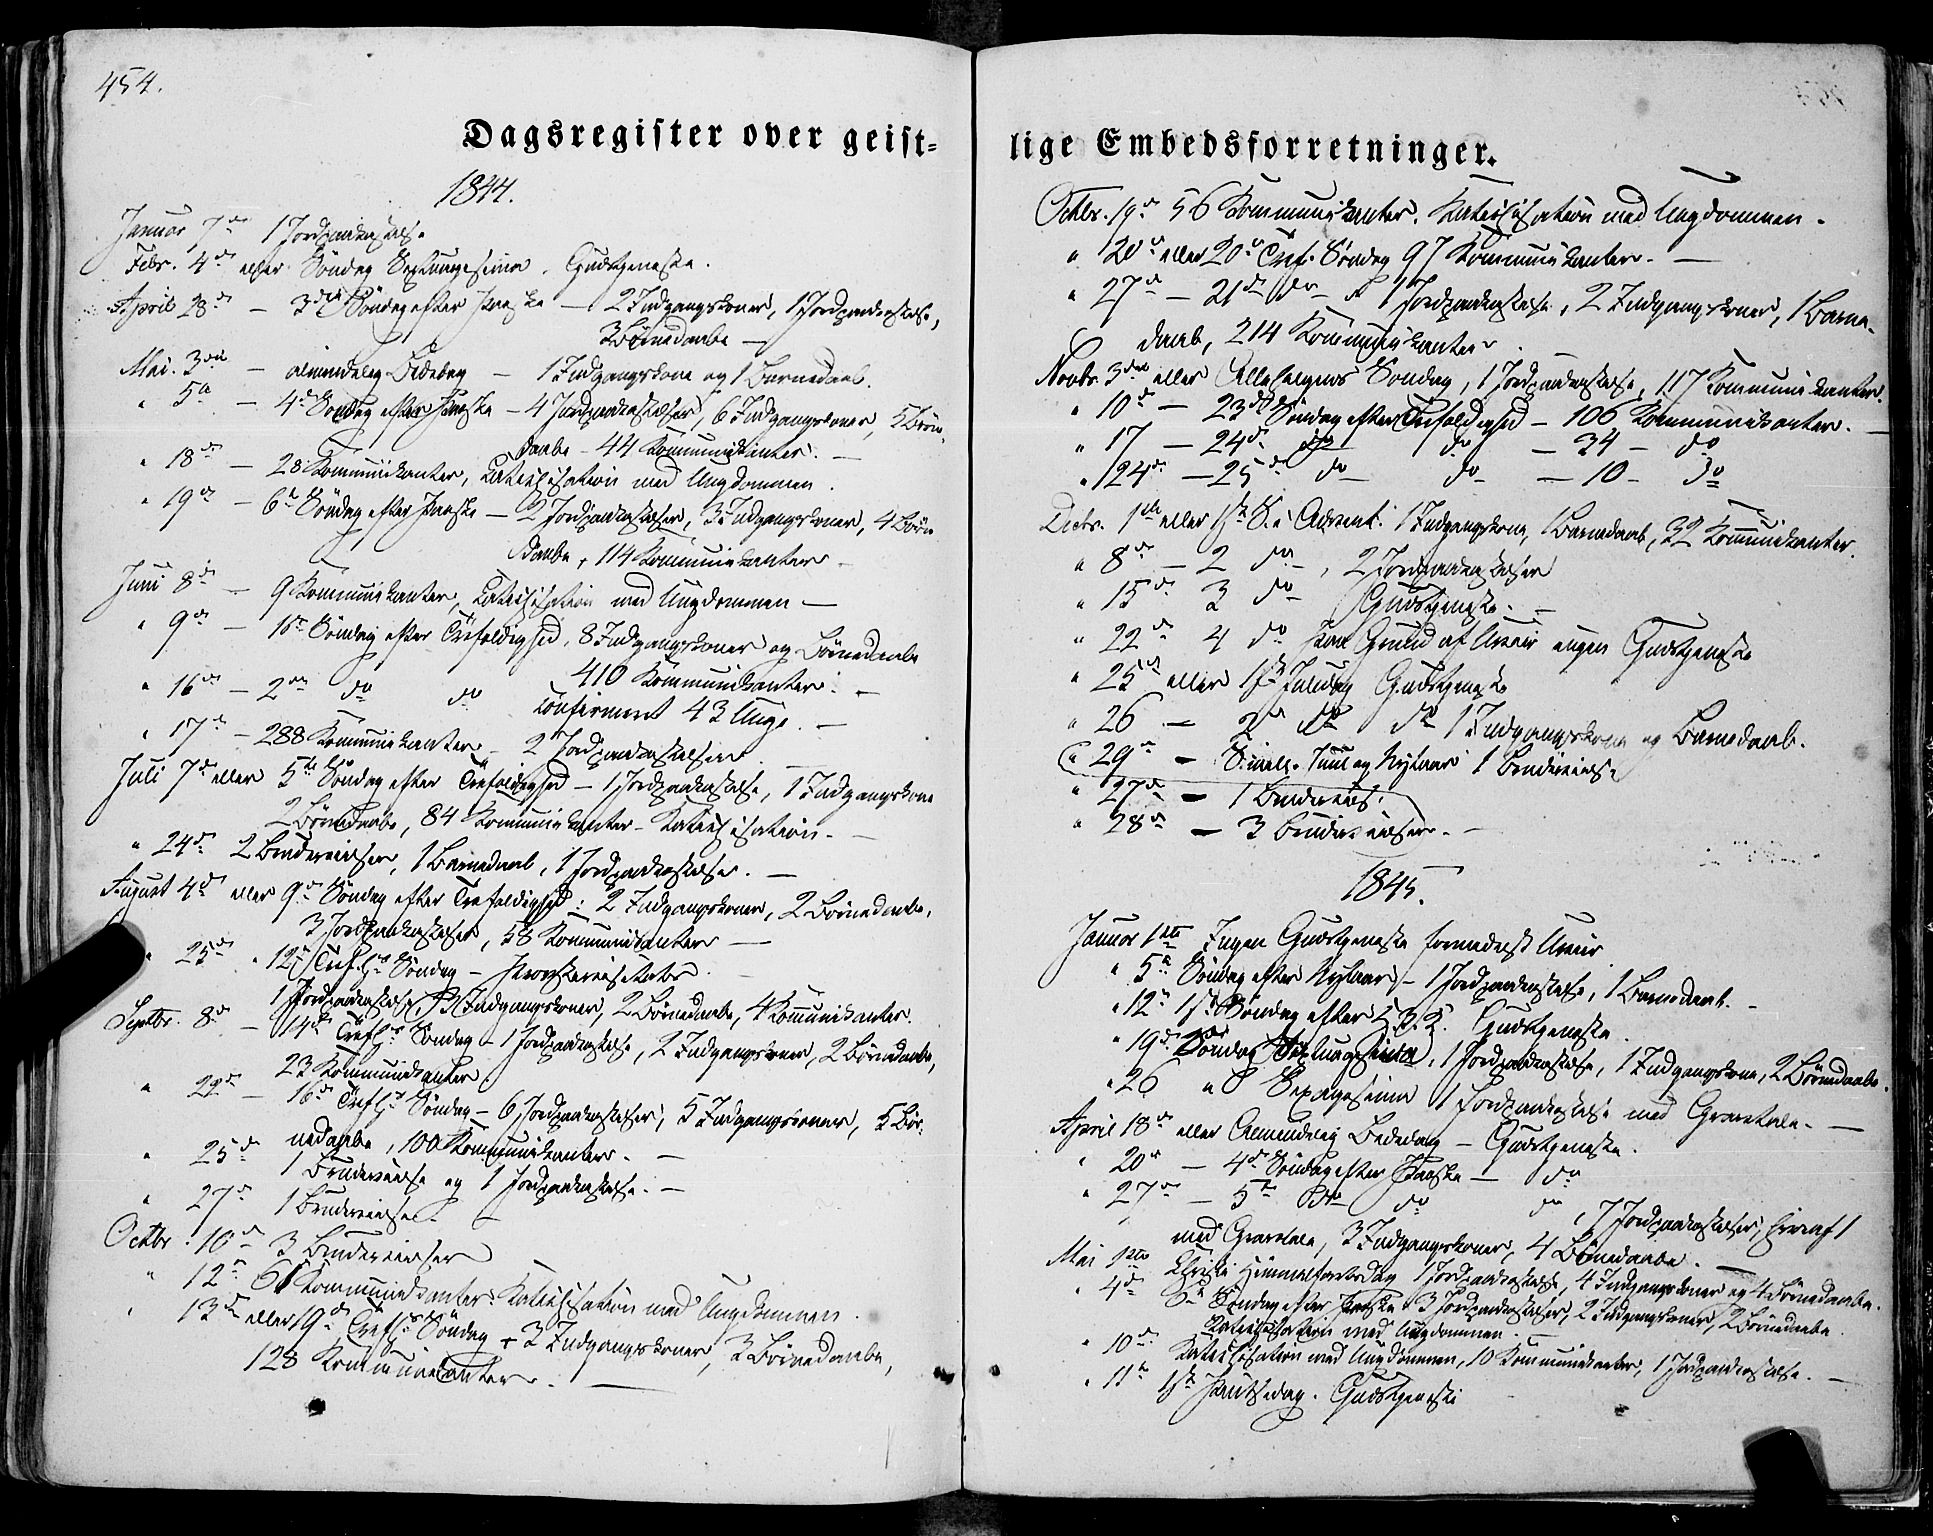 454.
Dagsregister over geist-
1844.
Januar 7de 1 Jordpaakastelse
Febr. 4de eller Søndag Septuagesima. Gudstjeneste.
April 28de – 3die Søndag efter Paaske – 2 Indgangskoner, 1 Jordpaakastelse,
3 Børnedaabe –
Mai. 3die – almindelig Bededag – 1 Indgangskone og 1 Barnedaab.
" 5te – 4de Søndag efter Paaske – 4 Jordpaakastelser, 6 Indgangskoner, 5 Børne-
daabe – 44 Kommunikanter. –
" 18de – 28 Kommunikanter, Catechisation med Ungdommen.
" 19de – 6te Søndag efter Paaske – 2 Jordpaakastelser, 3 Indgangskoner, 4 Børne
daabe, 114 Kommunikanter –
Juni 8de – 9 Kommunikanter, Catechisation med Ungdommen –
" 9de – 1ste Søndag efter Trefoldighed. 8 Indgangskoner og Børnedaabe
410 Kommunikanter. –
" 16de – 2den do do confirmeret 43 Unge. –
" 17de – 288 Kommunikanter – 2 Jordpaakastelser. –
Juli 7de eller 5te Søndag efter Trefoldighed – 1 Jordpaakastelse, 1 Indgangskone
2 Børnedaabe, 84 Kommunikanter – Katechisation. –
" 24de 2 Brudevielser, 1 Barnedaab, 1 Jordpaakastelse. –
August 4de eller 9de Søndag efter Trefoldighed: 2 Indgangskoner, 2 Børnedaabe,
3 Jordpaakastelser, 58 Kommunikanter –
" 25de " 12te Tref. Søndag – Provstevisitats.
1 Jordpaakastelse, Indgangskoner, 2 Børnedaabe, 4 Kommunikanter.
Septbr. 8de – 14de Tref. Søndag – 1 Jordpaakastelse, 2 Indgangskoner, 2 Børnedaabe,
23 Kommunikanter.
" 22de – 16de Tref. Søndag – 6 Jordpaakastelser, 5 Indgangskoner, 5 Bør-
nedaabe, 100 Kommunikanter. –
" 25de 1 Brudevielse og 1 Jordpaakastelse. –
" 27de 1 Brudevielse. –
Octbr. 10de 3 Brudevielser
" 12te 61 Kommunikanter. Katechisation med Ungdommen.
" 13de eller 19de Tref. Søndag + 3 Indgangskoner, 3 Børnedaabe,
128 Kommunikanter. –
lige Embedsforretninger.
Octbr. 19de 56 Kommunikanter. Katechisation med Ungdommen.
" 20de eller 20de Tref. Søndag 97 Kommunikanter. –
" 27de – 21de do – 1 Jordpaakastelse, 2 Indgangskoner, 1 Barne-
daab, 214 Kommunikanter.
Novbr. 3die eller Allehelgens Søndag, 1 Jordpaakastelse, 117 Kommunikanter.
" 10de – 23de Søndag efter Trefoldighed – 106 Kommunikanter. –
" 17 – 24de do do – 34 – do
" 24de – 25de do – do – 10 – do
Decbr. 1ste eller 1ste S. i Advent. 1 Indgangskone, 1 Barnedaab, 32 Kommunikanter.
" 8de – 2 do –, 2 Jordpaakastelser
" 15de 3 do – Gudstjeneste. –
" 22de 4 do paa Grund af Uveir ingen Gudstjeneste
" 25de eller 1ste Juledag Gudstjeneste
" 26 – 2den do do 1 Indgangskone og Barnedaab.
" 29de – S. mell. Juul og Nytaar 1 Brudevielse
" 27de – 1 Brudeviels.
" 28de – 3 Brudevielser. –
1845.
Januar 1ste Ingen Gudstjeneste formedelst Uveir
" 5te Søndag efter Nytaar – 1 Jordpaakastelse, 1 Barnedaab. –
" 12te 1ste Søndag efter H.3.K. Gudstjeneste.
" 19de Søndag Septuagesima, 1 Jordpaakastelse, 1 Indgangskone, 2 Børnedaabe.
" 26 " Sexagesima 1 Jordpaakastelse med Gravtale. –
April 18de eller Almindelig Bededag – Gudstjeneste.
" 20de – 4de Søndag efter Paaske – do
" 27de – 5te do do do, 7 Jordpaakastelser, hvoraf 1
med Gravtale, 3 Indgangskoner, 4 Børnedaabe. –
Mai 1ste Christi Himmelfartsdag 1 Jordpaakastelse, 4 Indgangskoner og 4 Børnedaabe.
" 4de 6te Søndag efter Paaske 3 Jordpaakastelser, 2 Indgangskoner, 2 Børnedaabe.
Katechisation med Ungdommen. –
" 10de Katechisation med Ungdommen, 10 Kommunikanter, 1 Jordpaakastelse. –
" 11te 1ste Pintsedag. Gudstjeneste